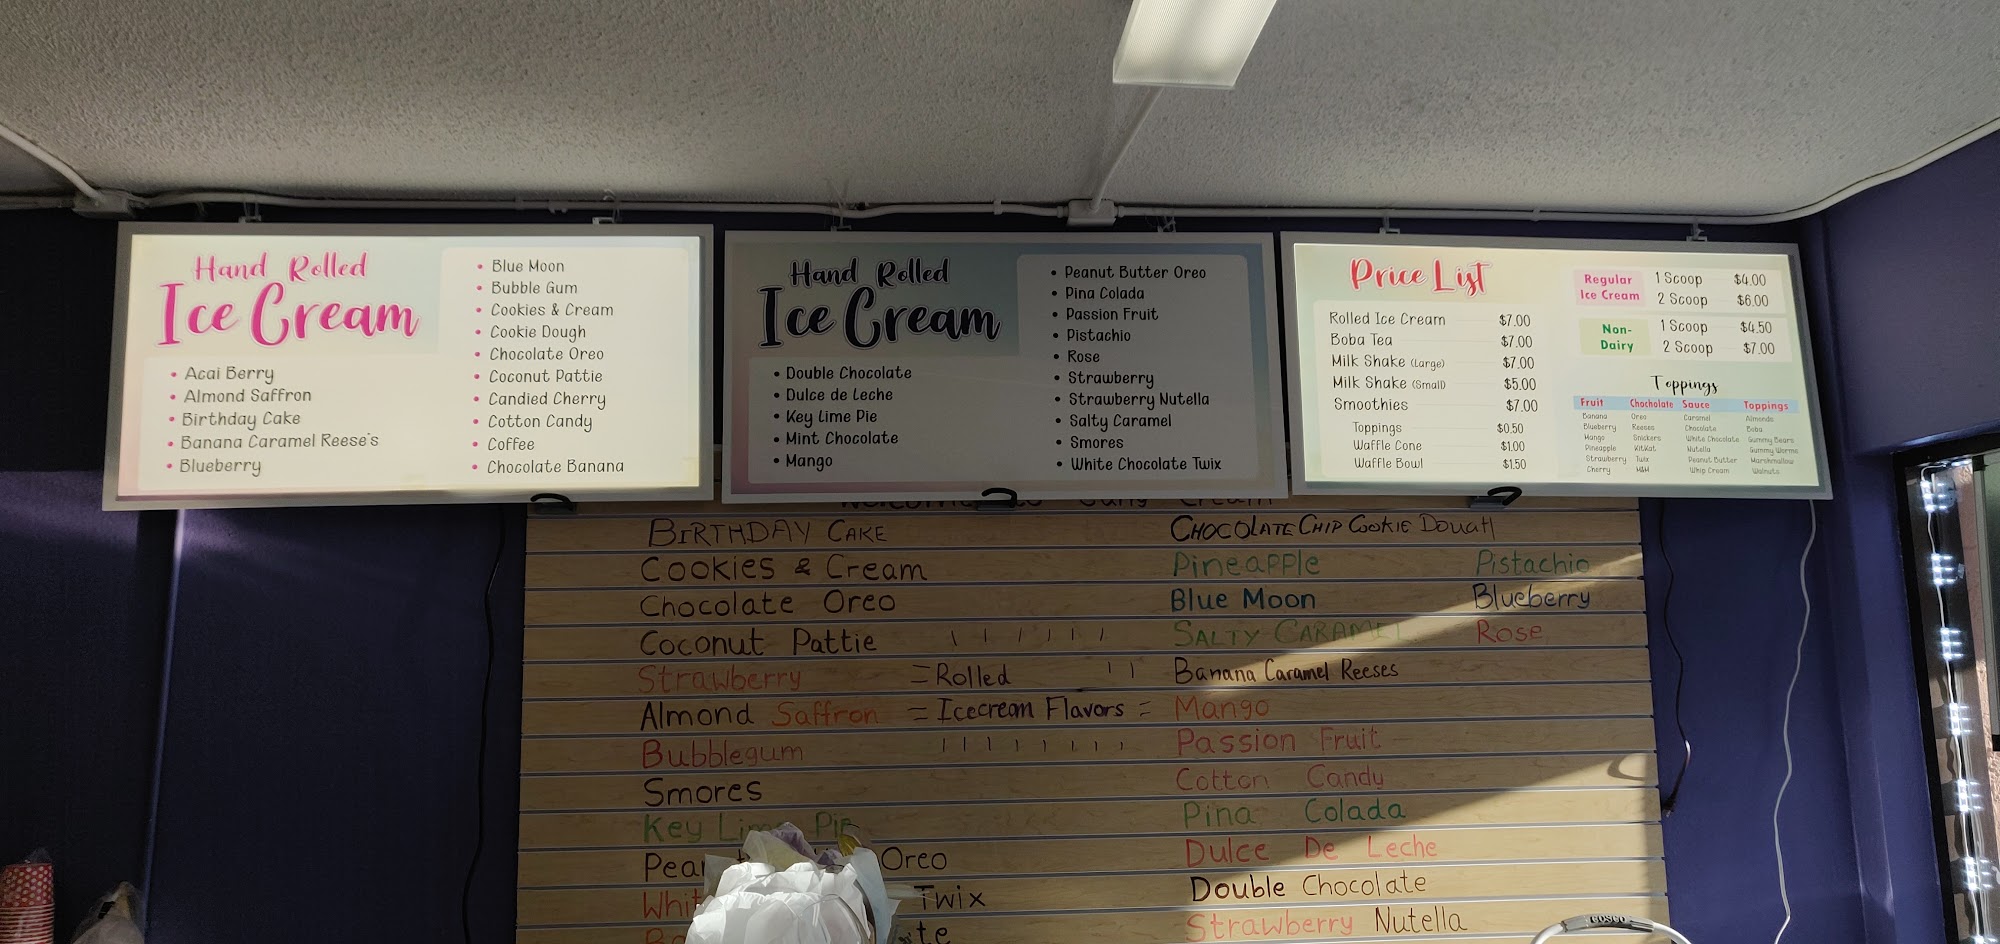 Hand Rolled
Ice Cream
• Acai Berry
• Almond Saffron
• Birthday Cake
• Banana Caramel Reese's
• Blueberry
• Blue Moon
• Bubble Gum
• Cookies & Cream
• Cookie Dough
• Chocolate Oreo
• Coconut Pattie
• Candied Cherry
• Cotton Candy
• Coffee
• Chocolate Banana
Hand Rolled
Ice Cream
• Double Chocolate
• Dulce de Leche
• Key Lime Pie
• Mint Chocolate
• Mango
• Peanut Butter Oreo
• Pina Colada
• Passion Fruit
• Pistachio
• Rose
• Strawberry
• Strawberry Nutella
• Salty Caramel
• Smores
• White Chocolate Twix
Price List
Rolled Ice Cream $7.00
Boba Tea $7.00
Milk Shake (Large) $7.00
Milk Shake (Small) $5.00
Smoothies $7.00
Toppings $0.50
Waffle Cone $1.00
Waffle Bowl $1.50
Regular
Ice Cream
1 Scoop $4.00
2 Scoop $6.00
Non-
Dairy
1 Scoop $4.50
2 Scoop $7.00
Toppings
Fruit Chocholate Sauce Toppings
Banana Oreo Caramel Almonds
Blueberry Reeses Chocolate Boba
Mango Snickers White Chocolate Gummy Bears
Pineapple KitKat Nutella Gummy Worms
Strawberry Twix Peanut Butter Marshmallow
Cherry M&M Whip Cream Walnuts
Welcome to Cream
BIRTHDAY CAKE
Cookies & Cream
Chocolate Oreo
Coconut Pattie
Strawberry
Almond Saffron
Bubblegum
Smores
Key Lime Pie
Oreo
Twix
= Rolled
= Icecream Flavors =
CHOCOLATE CHIP COOKIE DOUGH
Pineapple Pistachio
Blue Moon Blueberry
SALTY CARAMEL Rose
Banana Caramel Reeses
Mango
Passion Fruit
Cotton Candy
Pina Colada
Dulce De Leche
Double Chocolate
Strawberry Nutella
BOSCO